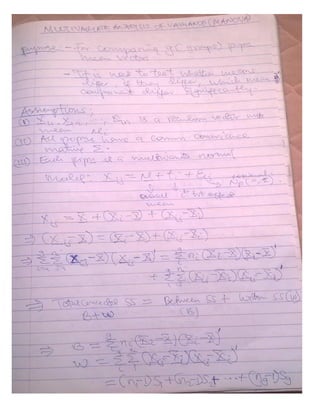 MULTIVARIATE ANALYSIS OF VARIANCE (MANOVA)
Purpose - For comparing g( groups) popns
mean vector
- It is used to test whether means
differ, if they differ, which mean
component differ significantly.
Assumptions:
(i) X₁₁, X₁₂, ..., is a random vector with
mean
(ii) All popns have a common covariance
matrix Σ.
(iii) Each popn is a multivariate normal
Model: Xij = μ + τi + εij
overall effect
mean
Xij = X̄ + (X̄i - X̄) + (Xij - X̄i)
⇒ (Xij - X̄) = (X̄i - X̄) + (Xij - X̄i)
⇒ ΣΣ (Xij - X̄)(Xij - X̄)' = Σ ni (X̄i - X̄)(X̄i - X̄)'
+ ΣΣ (Xij - X̄i)(Xij - X̄i)'
⇒ Total Corrected SS = Between SS + Within SS (W)
B + W (B)
⇒ B = Σ ni (X̄i - X̄)(X̄i - X̄)'
W = ΣΣ (Xij - X̄i)(Xij - X̄i)'
= (n₁-1)S₁ + (n₂-1)S₂ + ... + (ng-1)Sg